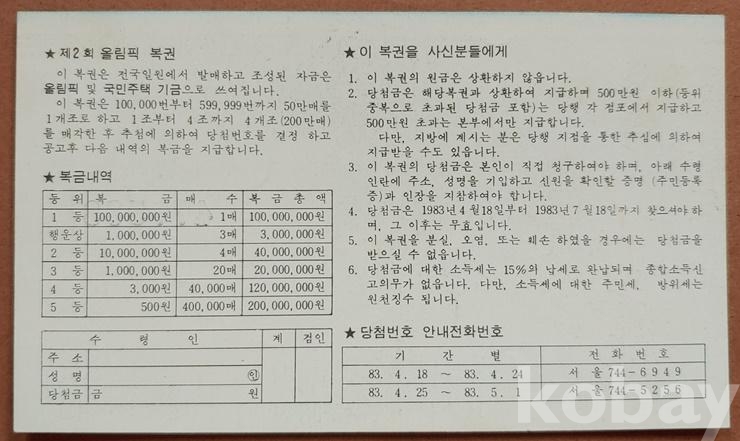 ★ 제2회 올림픽 복권
이 복권은 전국일원에서 발매하고 조성된 자금은
올림픽 및 국민주택 기금으로 쓰여집니다.
이 복권은 100,000번부터 599,999번까지 50만매를
1개조로 하고 1조부터 4조까지 4개조(200만매)
를 매각한 후 추첨에 의하여 당첨번호를 결정 하고
공고후 다음 내역의 복금을 지급합니다.
★ 복금내역
등 위 복 금 매 수 복 금 총 액
1 등 100,000,000원 1매 100,000,000원
행운상 1,000,000원 3매 3,000,000원
2 등 10,000,000원 4매 40,000,000원
3 등 1,000,000원 20매 20,000,000원
4 등 3,000원 40,000매 120,000,000원
5 등 500원 400,000매 200,000,000원
수 령 인 계 검인
주 소
성 명 ㊞
당첨금 금 원
★ 이 복권을 사신분들에게
1. 이 복권의 원금은 상환하지 않읍니다.
2. 당첨금은 해당복권과 상환하여 지급하며 500만원 이하(등위
중복으로 초과된 당첨금 포함)는 당행 각 점포에서 지급하고
500만원 초과는 본부에서만 지급합니다.
다만, 지방에 계시는 분은 당행 지점을 통한 추심에 의하여
지급받을 수도 있읍니다.
3. 이 복권의 당첨금은 본인이 직접 청구하여야 하며, 아래 수령
인란에 주소, 성명을 기입하고 신원을 확인할 증명 (주민등록
증)과 인장을 지참하여야 합니다.
4. 당첨금은 1983년 4월18일부터 1983년 7월18일까지 찾으셔야하
며, 그 이후는 무효입니다.
5. 이 복권을 분실, 오염, 또는 훼손 하였을 경우에는 당첨금을
받으실 수 없읍니다.
6. 당첨금에 대한 소득세는 15%의 납세로 완납되며 종합소득신
고의무가 없읍니다. 다만, 소득세에 대한 주민세, 방위세는
원천징수 됩니다.
★ 당첨번호 안내전화번호
기 간 별 전 화 번 호
83. 4. 18 ~ 83. 4. 24 서 울 744-6949
83. 4. 25 ~ 83. 5. 1 서 울 744-5256
kobay